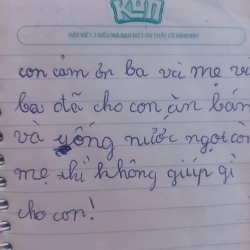 KUN
HÃY VIẾT 3 ĐIỀU MÀ BẠN BIẾT ƠN THẦY CÔ HÔM NAY
con cảm ơn ba và mẹ vì
ba đã cho con ăn bán
và uống nước ngọt còn
mẹ thì không giúp gì
cho con!